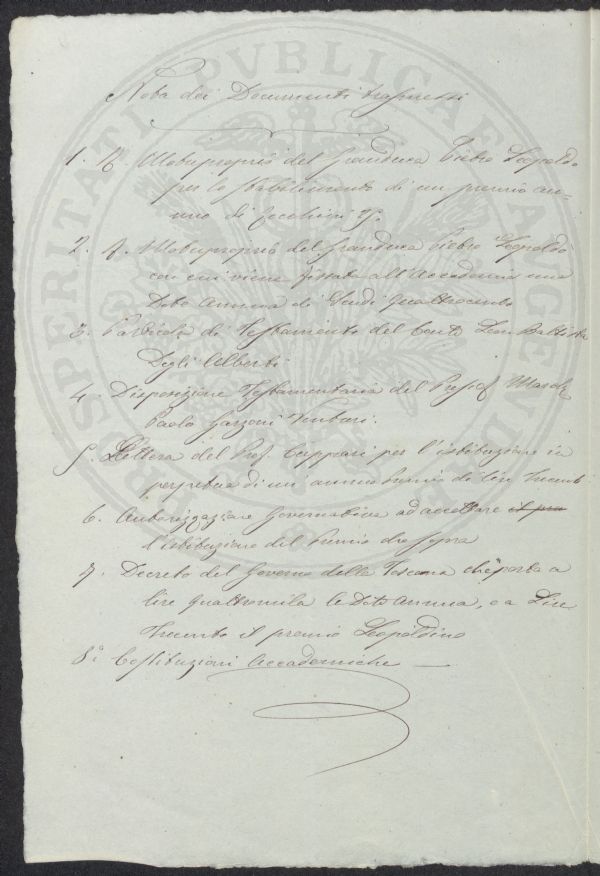 Nota dei Documenti trasmessi
1. R. Motuproprio del Granduca Pietro Leopoldo
per lo stabilimento di un premio an=
nuo di Zecchini
2. R. Motuproprio del Granduca Pietro Leopoldo
con cui viene fissata all'Accademia una
Dote Annua di Scudi Quattrocento
3. Particola di Testamento del Conte Leon Battista
Degli Alberti
4. Disposizione Testamentaria del March
Paolo Garzoni Venturi.
5. Lettera del Prof. Cuppari per l'istituzione in
perpetuo di un annuo Premio di Lire Trecento
6. Autorizzazione Governativa ad accettare il pre
l'istituzione del Premio di Sopra
7. Decreto del Governo della Toscana che porta a
lire quattromila la Dote Annua, e a Lire
Trecento il premio Leopoldino
8.° Costituzioni Accademiche —
PROSPERITATI PVBLICAE AVGENDAE